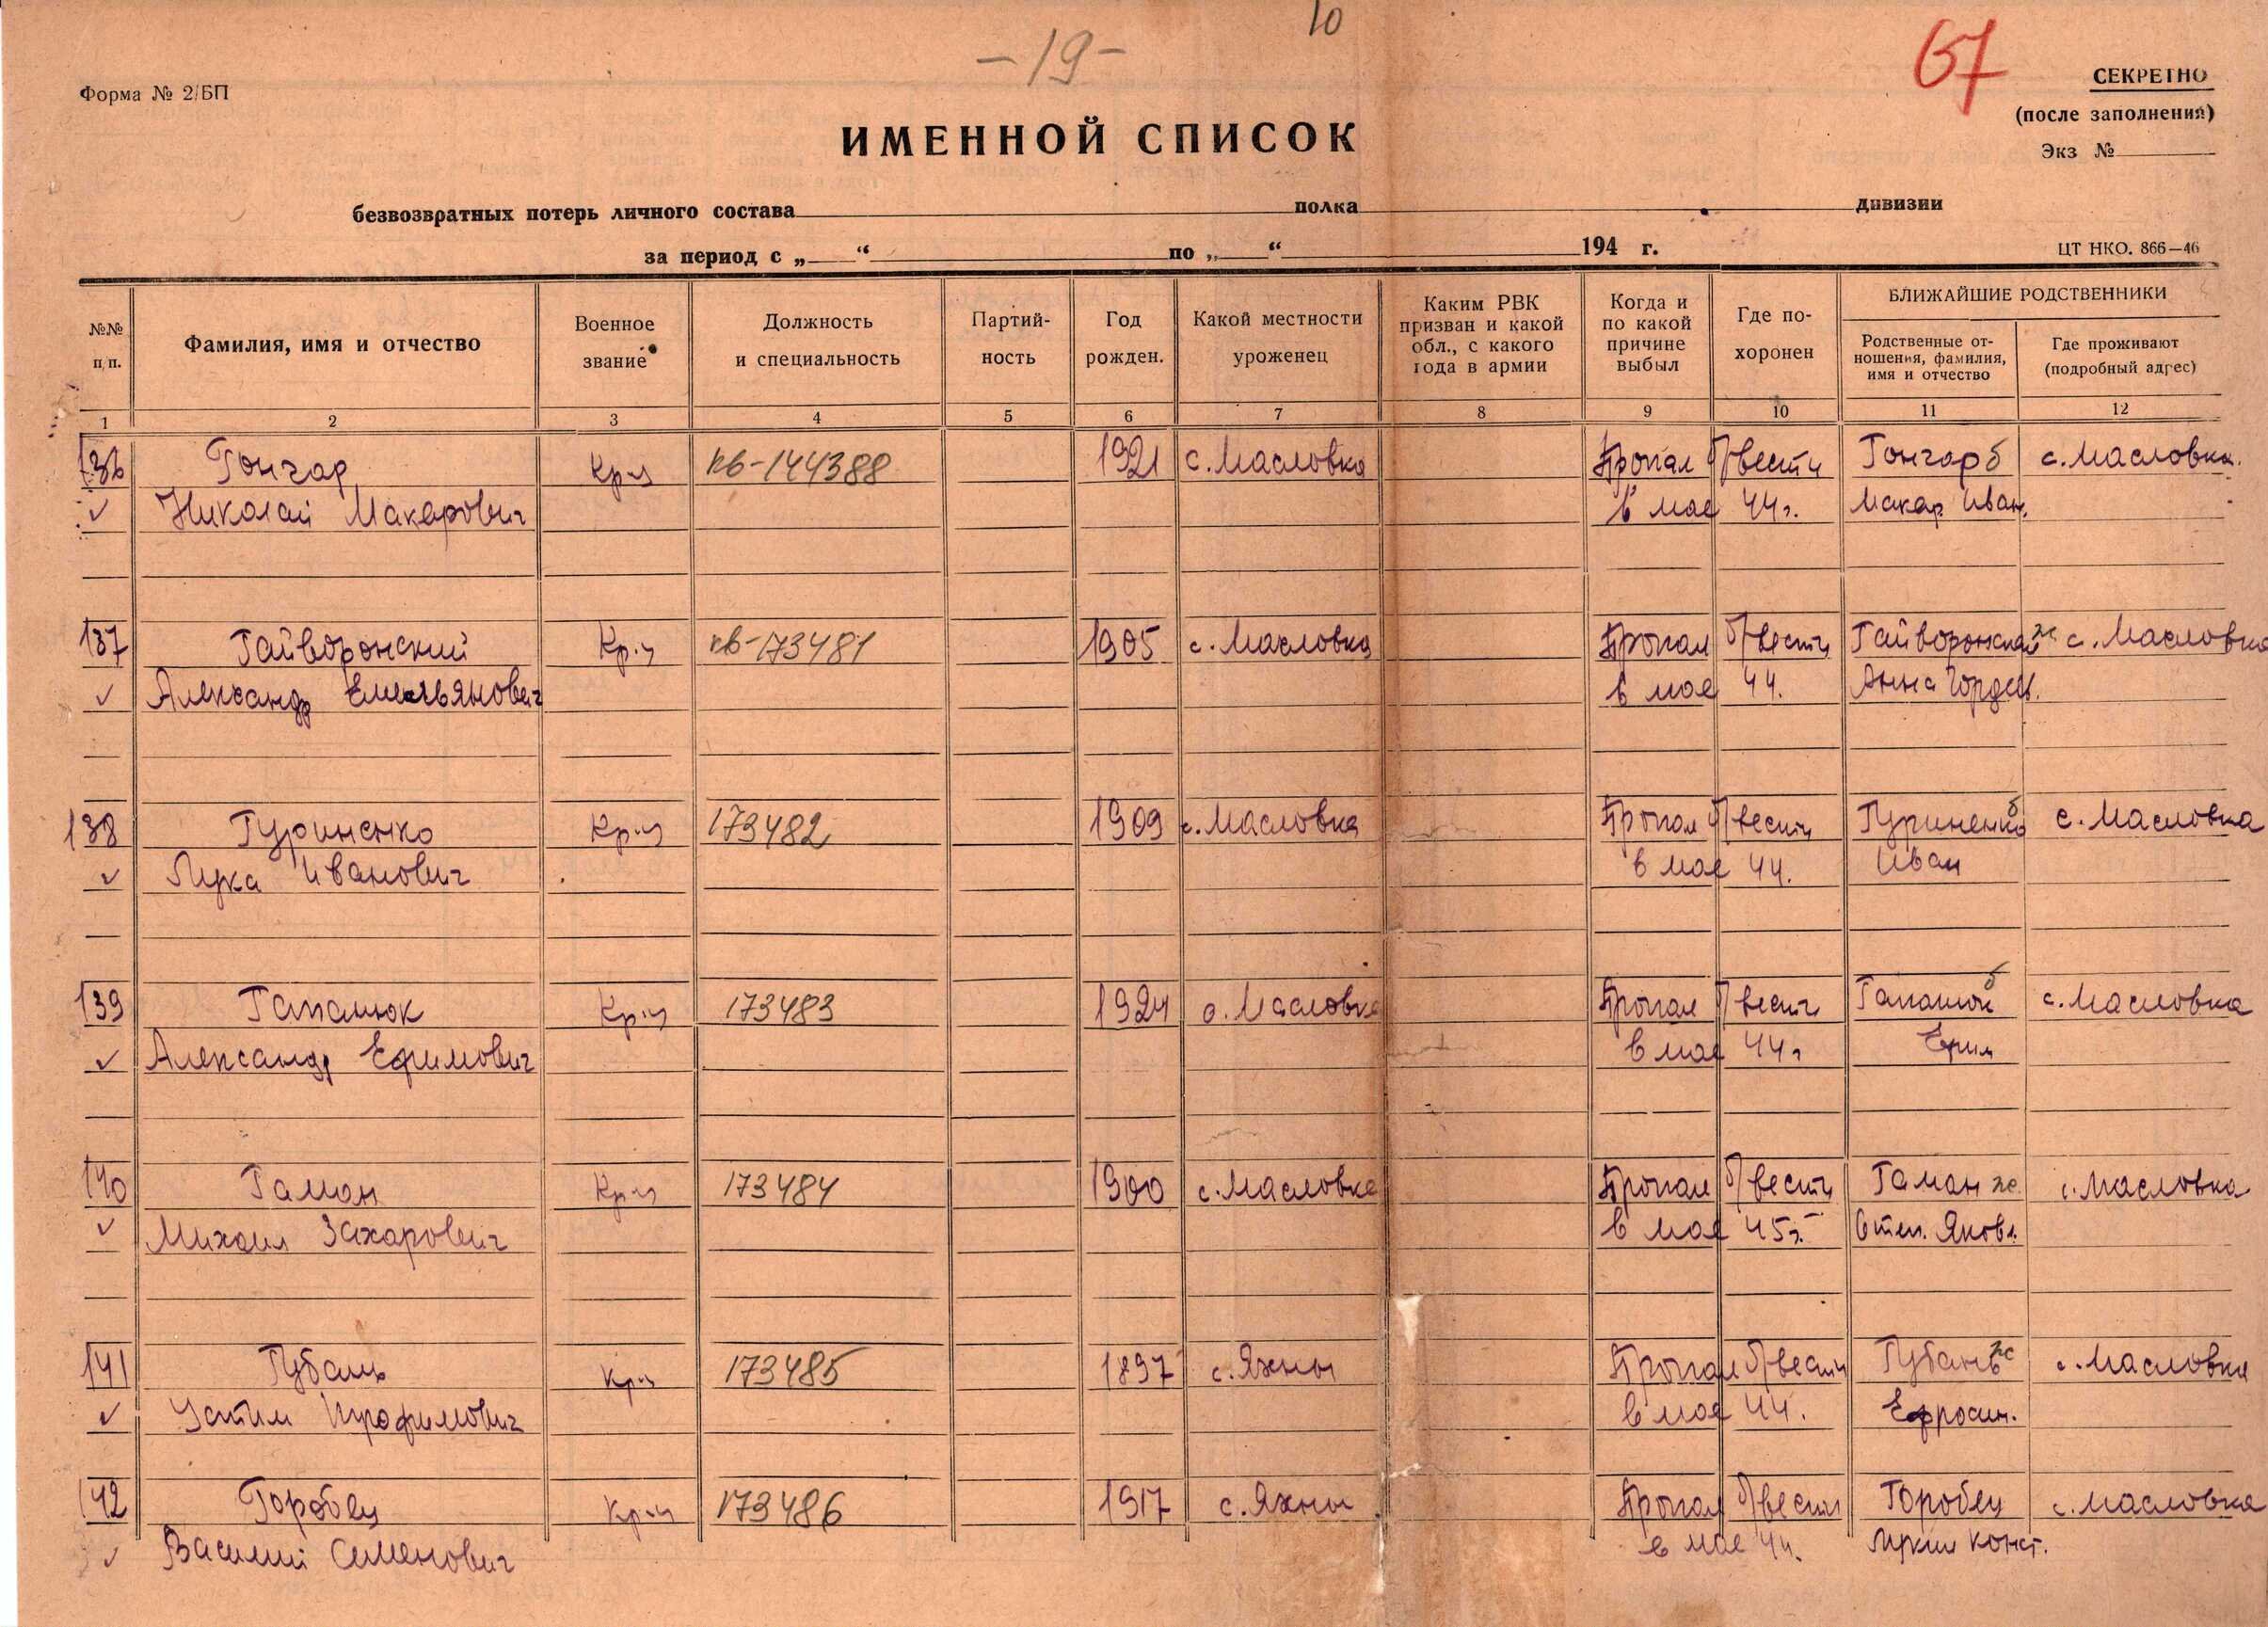 10
-19-
67
Форма № 2/БП
СЕКРЕТНО
(после заполнения)
Экз №
ИМЕННОЙ СПИСОК
безвозвратных потерь личного состава полка дивизии
за период с „ “ по „ “ 194 г.
ЦТ НКО. 866—46
№№ п/п. Фамилия, имя и отчество Военное звание Должность и специальность Партий-ность Год рожден. Какой местности уроженец Каким РВК призван и какой обл., с какого года в армии Когда и по какой причине выбыл Где по-хоронен БЛИЖАЙШИЕ РОДСТВЕННИКИ
Родственные от-ношения, фамилия, имя и отчество Где проживают (подробный адрес)
1 2 3 4 5 6 7 8 9 10 11 12
136 Гончар Кр-ц кв-144388 1921 с. Масловка Пропал б/вести Гончар б с. Масловка.
Николай Макарович в мае 44г. Макар Иван.
137 Гайворонский Кр-ц кв-173481 1905 с. Масловка Пропал б/вести Гайворонская ж с. Масловка
Александр Емельянович в мае 44. Анна Гордеев.
138 Гуриненко Кр-ц 173482 1909 с. Масловка Пропал б/вести Гуриненко б с. Масловка
Лука Иванович в мае 44. Иван
139 Гапанюк Кр-ц 173483 1924 с. Масловка Пропал б/вести с. Масловка
Александр Ефимович в мае 44г Ефим
140 Гаман Кр-ц 173484 1900 с. Масловка Пропал б/вести Гаман ж с. Масловка
Михаил Захарович в мае 45г. Степ. Яковл.
141 Губань Кр-ц 173485 1897 с. Яхны Пропал б/вести Губань ж с. Масловка
Устим Трофимович в мае 44. Ефросин.
142 Горобец Кр-ц 173486 1917 с. Яхны Пропал б/вести Горобец с. Масловка
Василий Семенович в мае 44. Конст.